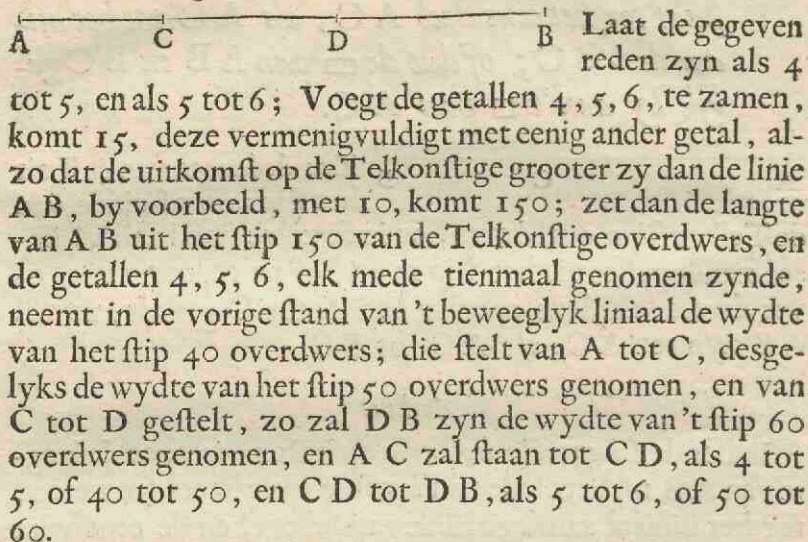 A C D B
Laat de gegeven
reden zyn als 4
tot 5, en als 5 tot 6; Voegt de getallen 4, 5, 6, te zamen,
komt 15, deze vermenigvuldigt met eenig ander getal, al-
zo dat de uitkomſt op de Telkonſtige grooter zy dan de linie
A B, by voorbeeld, met 10, komt 150; zet dan de langte
van A B uit het ſtip 150 van de Telkonſtige overdwers, en
de getallen 4, 5, 6, elk mede tienmaal genomen zynde,
neemt in de vorige ſtand van 't beweeglyk liniaal de wydte
van het ſtip 40 overdwers; die ſtelt van A tot C, desge-
lyks de wydte van het ſtip 50 overdwers genomen, en van
C tot D geſtelt, zo zal D B zyn de wydte van 't ſtip 60
overdwers genomen, en A C zal ſtaan tot C D, als 4 tot
5, of 40 tot 50, en C D tot D B, als 5 tot 6, of 50 tot
60.